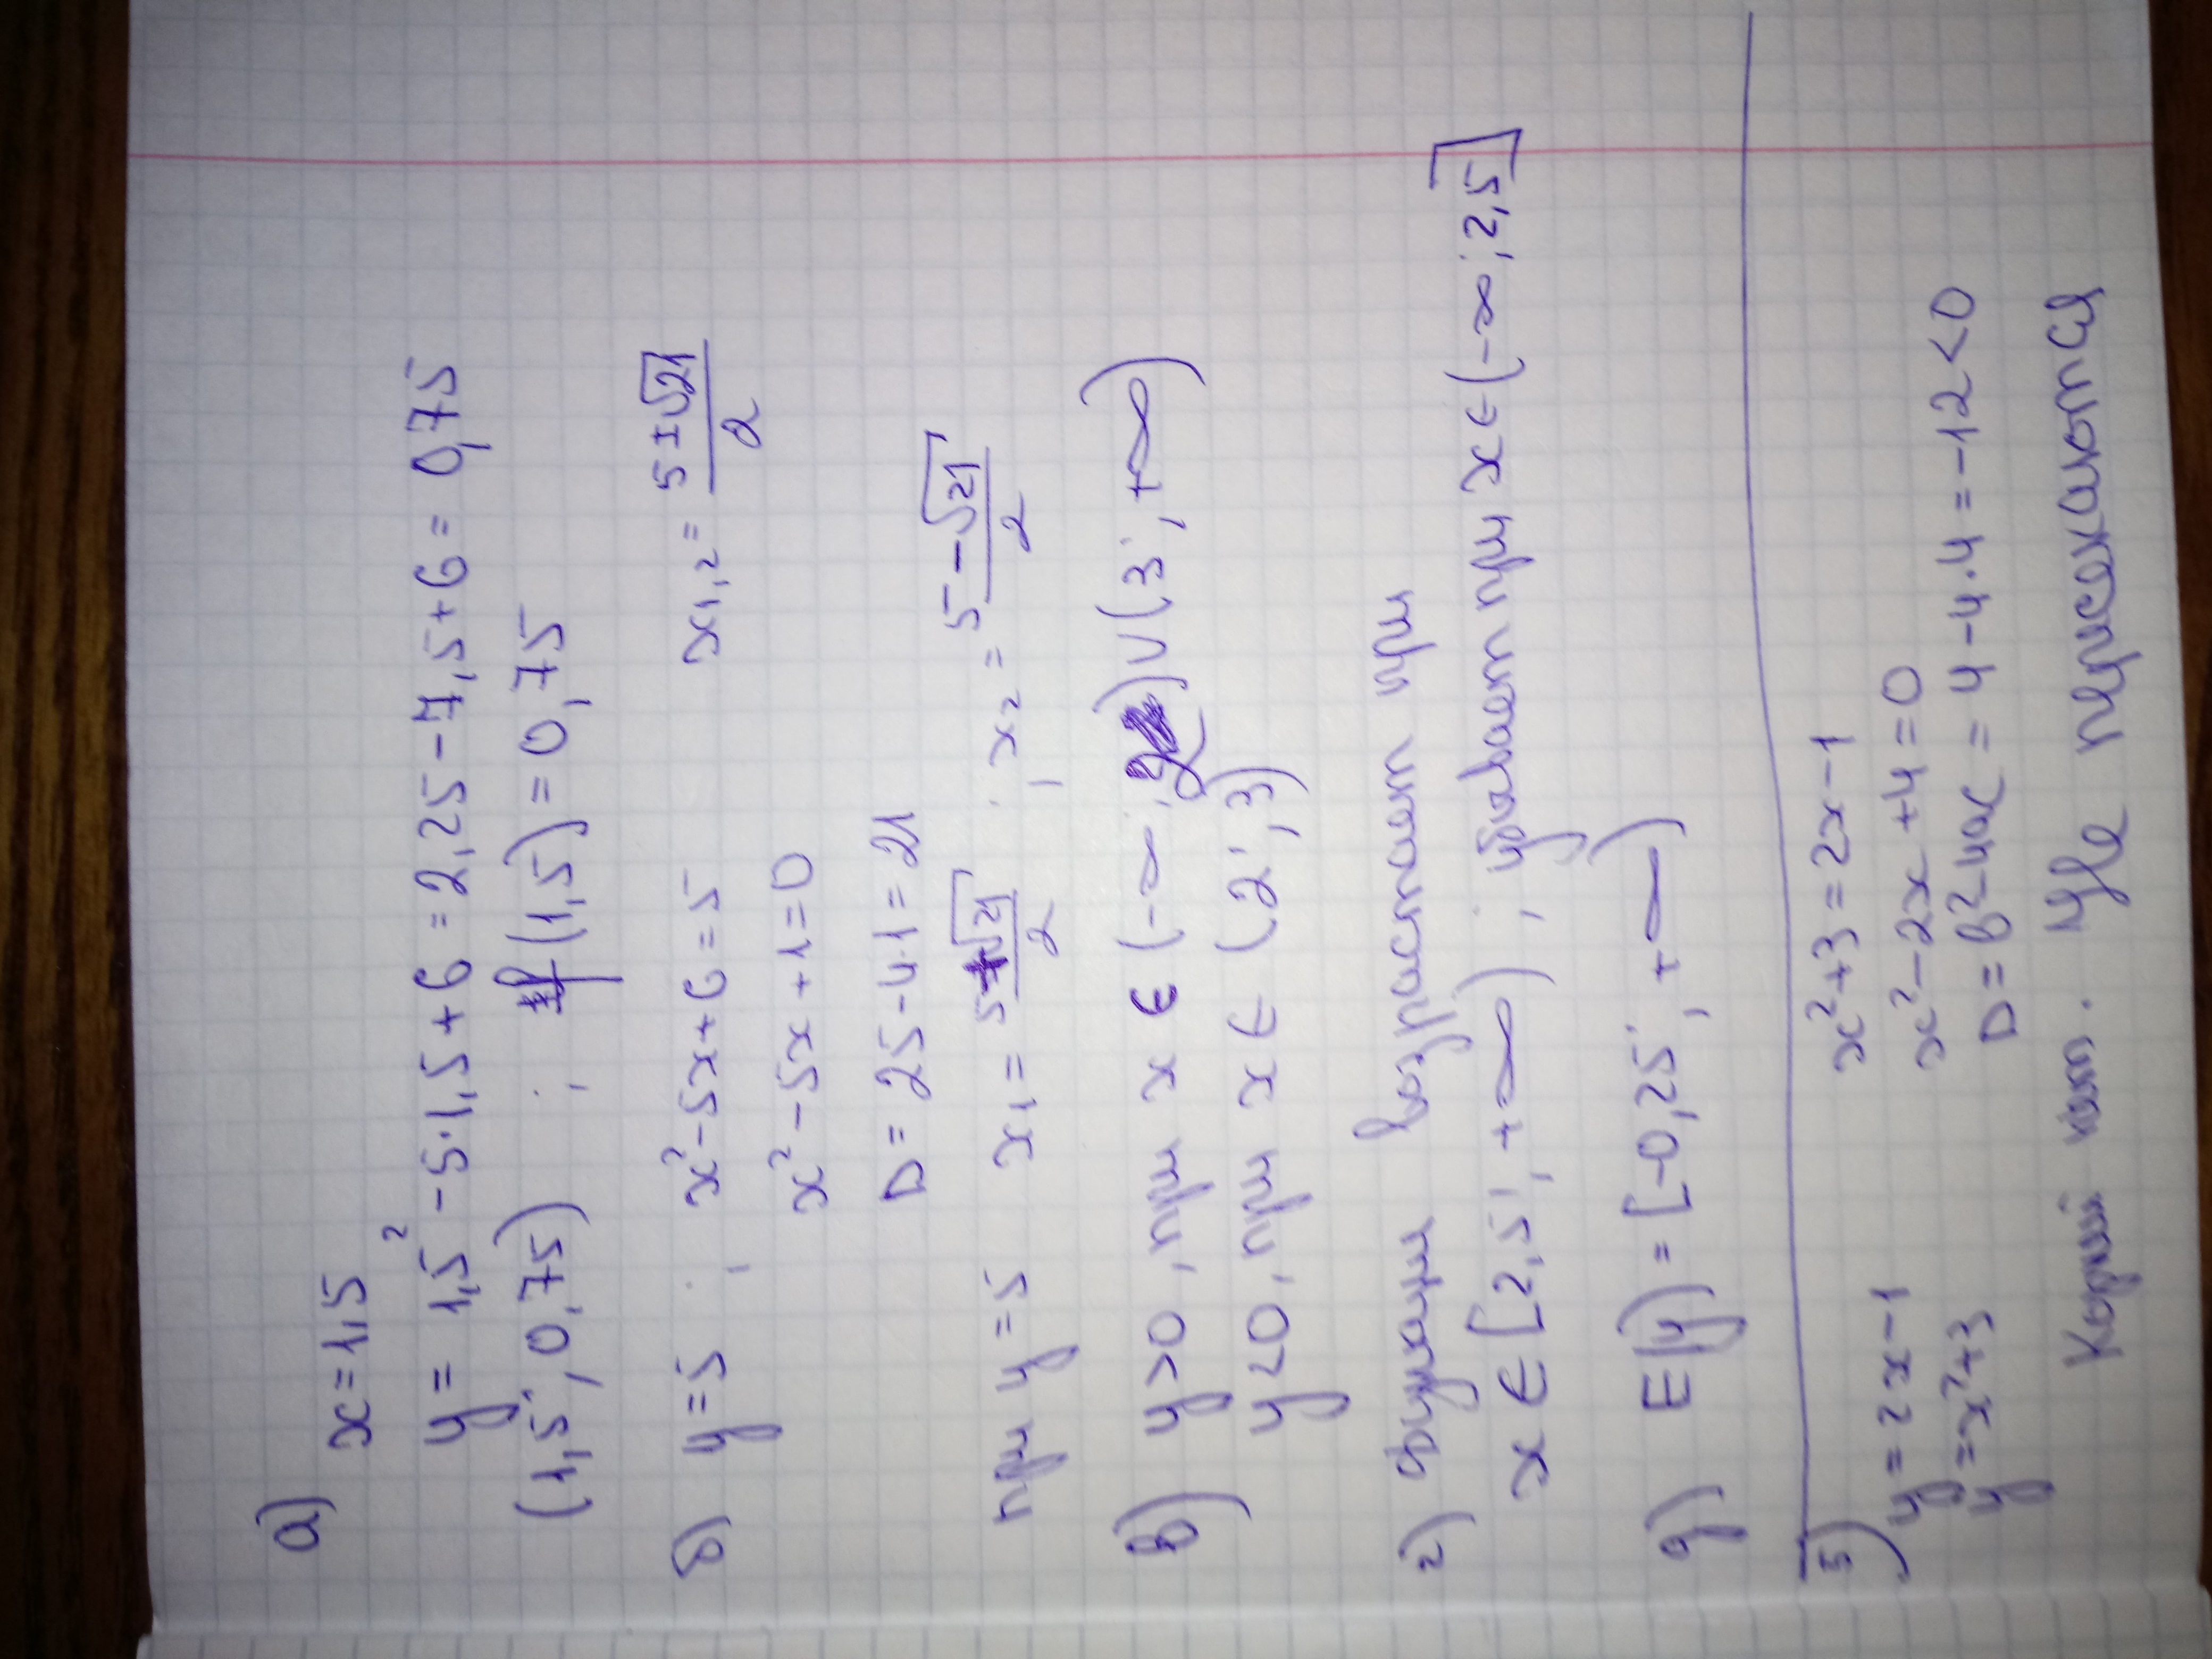 а) x=1,5
y = 1,5² -5·1,5+6 = 2,25-7,5+6= 0,75
(1,5; 0,75) ; f(1,5)=0,75
б) y=5 ; x²-5x+6=5 x₁,₂ = (5±√21)/2
x²-5x+1=0
D= 25-4·1=21
при y=5 x₁= (5+√21)/2 ; x₂ = (5-√21)/2
в) y>0, при x ∈ (-∞; 2)∪(3; +∞)
y<0, при x∈ (2; 3)
г) функции возрастает при
x∈[2,5; +∞) ; убывает при x∈(-∞; 2,5]
д) E(y)=[-0,25; +∞)
5) y=2x-1 x²+3=2x-1
y=x²+3 x²-2x+4=0
D=b²-4ac = 4-4·4=-12<0
Корней нет. Не пересекаются